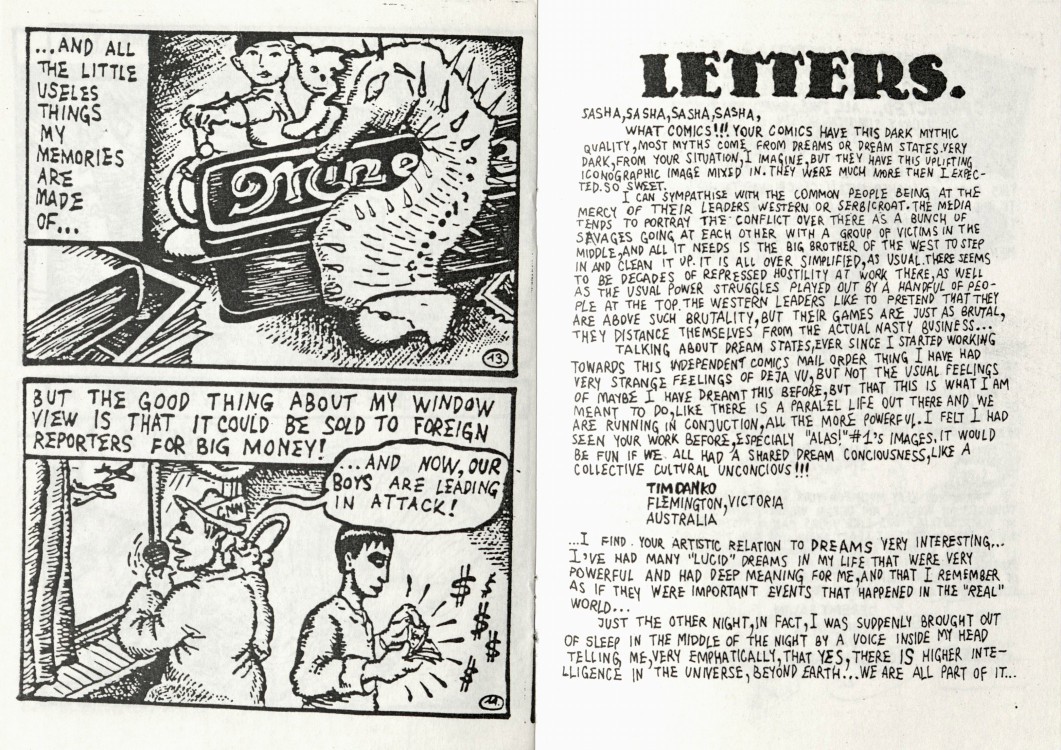 ...AND ALL
THE LITTLE
USELES
THINGS
MY
MEMORIES
ARE
MADE
OF...
Mine
13
BUT THE GOOD THING ABOUT MY WINDOW
VIEW IS THAT IT COULD BE SOLD TO FOREIGN
REPORTERS FOR BIG MONEY!
...AND NOW, OUR
BOYS ARE LEADING
IN ATTACK!
CNN
$ $ $ $ $ $
14.
LETTERS.
SASHA,SASHA,SASHA,SASHA,
WHAT COMICS!!! YOUR COMICS HAVE THIS DARK MYTHIC
QUALITY,MOST MYTHS COME FROM DREAMS OR DREAM STATES.VERY
DARK,FROM YOUR SITUATION,I IMAGINE,BUT THEY HAVE THIS UPLIFTING
ICONOGRAPHIC IMAGE MIXED IN.THEY WERE MUCH MORE THEN I EXPEC-
TED.SO SWEET.
I CAN SYMPATHISE WITH THE COMMON PEOPLE BEING AT THE
MERCY OF THEIR LEADERS WESTERN OR SERBICROAT.THE MEDIA
TENDS TO PORTRAY THE CONFLICT OVER THERE AS A BUNCH OF
SAVAGES GOING AT EACH OTHER WITH A GROUP OF VICTIMS IN THE
MIDDLE,AND ALL IT NEEDS IS THE BIG BROTHER OF THE WEST TO STEP
IN AND CLEAN IT UP.IT IS ALL OVER SIMPLIFIED,AS USUAL.THERE SEEMS
TO BE DECADES OF REPRESSED HOSTILITY AT WORK THERE,AS WELL
AS THE USUAL POWER STRUGGLES PLAYED OUT BY A HANDFUL OF PEO-
PLE AT THE TOP.THE WESTERN LEADERS LIKE TO PRETEND THAT THEY
ARE ABOVE SUCH BRUTALITY,BUT THEIR GAMES ARE JUST AS BRUTAL,
THEY DISTANCE THEMSELVES FROM THE ACTUAL NASTY BUSINESS...
TALKING ABOUT DREAM STATES,EVER SINCE I STARTED WORKING
TOWARDS THIS INDEPENDENT COMICS MAIL ORDER THING I HAVE HAD
VERY STRANGE FEELINGS OF DEJA VU,BUT NOT THE USUAL FEELINGS
OF MAYBE I HAVE DREAMT THIS BEFORE,BUT THAT THIS IS WHAT I AM
MEANT TO DO,LIKE THERE IS A PARALEL LIFE OUT THERE AND WE
ARE RUNNING IN CONJUCTION,ALL THE MORE POWERFUL.I FELT I HAD
SEEN YOUR WORK BEFORE,ESPECIALY "ALAS!"#1'S IMAGES.IT WOULD
BE FUN IF WE ALL HAD A SHARED DREAM CONCIOUSNESS,LIKE A
COLLECTIVE CULTURAL UNCONCIOUS!!!
TIM DANKO
FLEMINGTON,VICTORIA
AUSTRALIA
...I FIND YOUR ARTISTIC RELATION TO DREAMS VERY INTERESTING...
I'VE HAD MANY "LUCID" DREAMS IN MY LIFE THAT WERE VERY
POWERFUL AND HAD DEEP MEANING FOR ME,AND THAT I REMEMBER
AS IF THEY WERE IMPORTANT EVENTS THAT HAPPENED IN THE "REAL"
WORLD...
JUST THE OTHER NIGHT,IN FACT,I WAS SUDDENLY BROUGHT OUT
OF SLEEP IN THE MIDDLE OF THE NIGHT BY A VOICE INSIDE MY HEAD
TELLING ME,VERY EMPHATICALLY,THAT YES,THERE IS HIGHER INTE-
LLIGENCE IN THE UNIVERSE,BEYOND EARTH...WE ARE ALL PART OF IT...